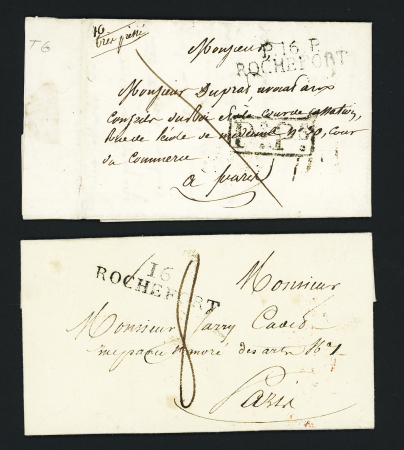 T6
16
très pressé
Monsieur
P.16.P.
ROCHEFORT
Monsieur Dupras avocat aux
Conseils du Roi et à la Cour de Cassation,
Rue de l'école de médecine n° 30, Cour
du Commerce
à Paris
16
ROCHEFORT
8
Monsieur
Monsieur
des arts N° 1
Paris